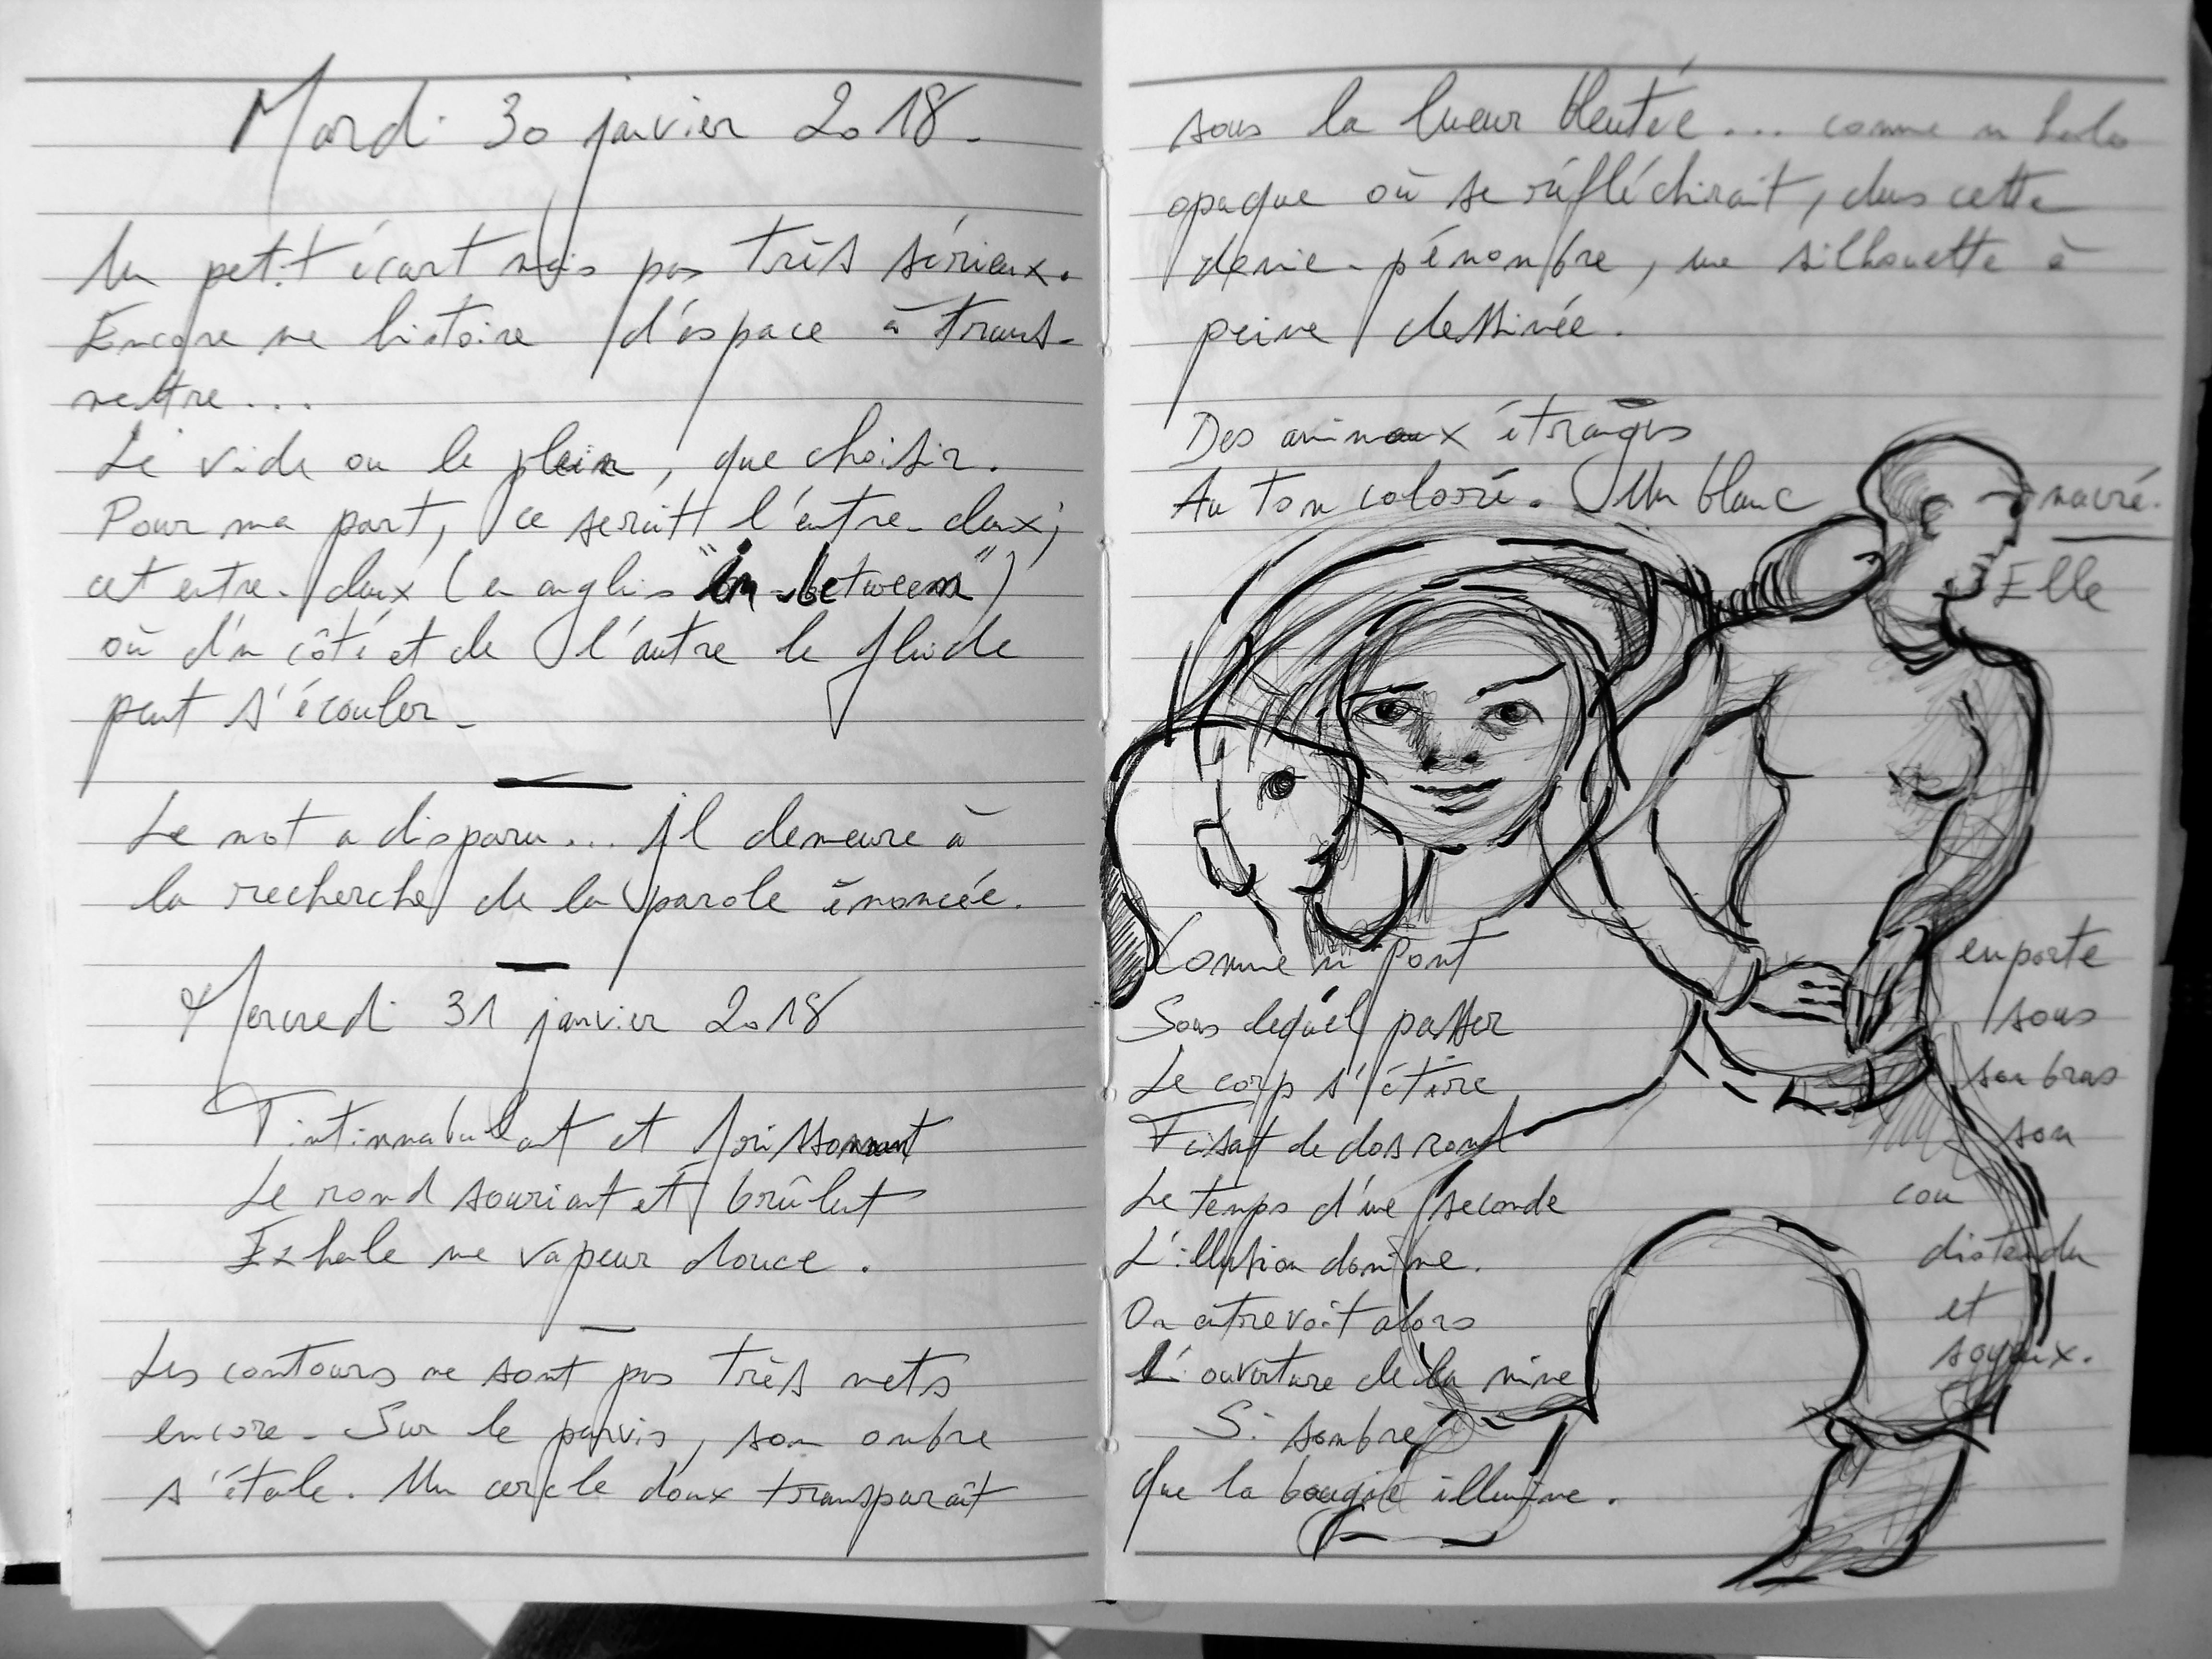 Mardi 30 janvier 2018.
Un petit écart mais pas très sérieux.
Encore une histoire d'espace à trans-
mettre...
Le vide ou le plein, que choisir.
Pour ma part, ce serait l'entre-deux;
cet entre-deux (en anglais "in-between")
où d'un côté et de l'autre le fluide
peut s'écouler.
Le mot a disparu... Il demeure à
la recherche de la parole énoncée.
Mercredi 31 janvier 2018
Tintinnabulant et frissonnant
Le rond souriant et brûlant
Exhale une vapeur douce.
Les contours ne sont pas très nets
encore. Sur le parvis, son ombre
s'étale. Un cercle doux transparaît
sous la lueur bleutée... comme un halo
opaque où se réfléchirait, dans cette
demie-pénombre, une silhouette à
peine dessinée.
Des animaux étranges
Au ton coloré. Un blanc nacré.
Elle
emporte
sous
son bras
son
cou
distendu
et
soyeux.
Comme un Pont
Sous lequel passer
Le corps s'étire
Faisant de dos rond
Le temps d'une seconde
L'illusion domine.
On entrevoit alors
L'ouverture de la mine
Si sombre
Que la bougie illumine.